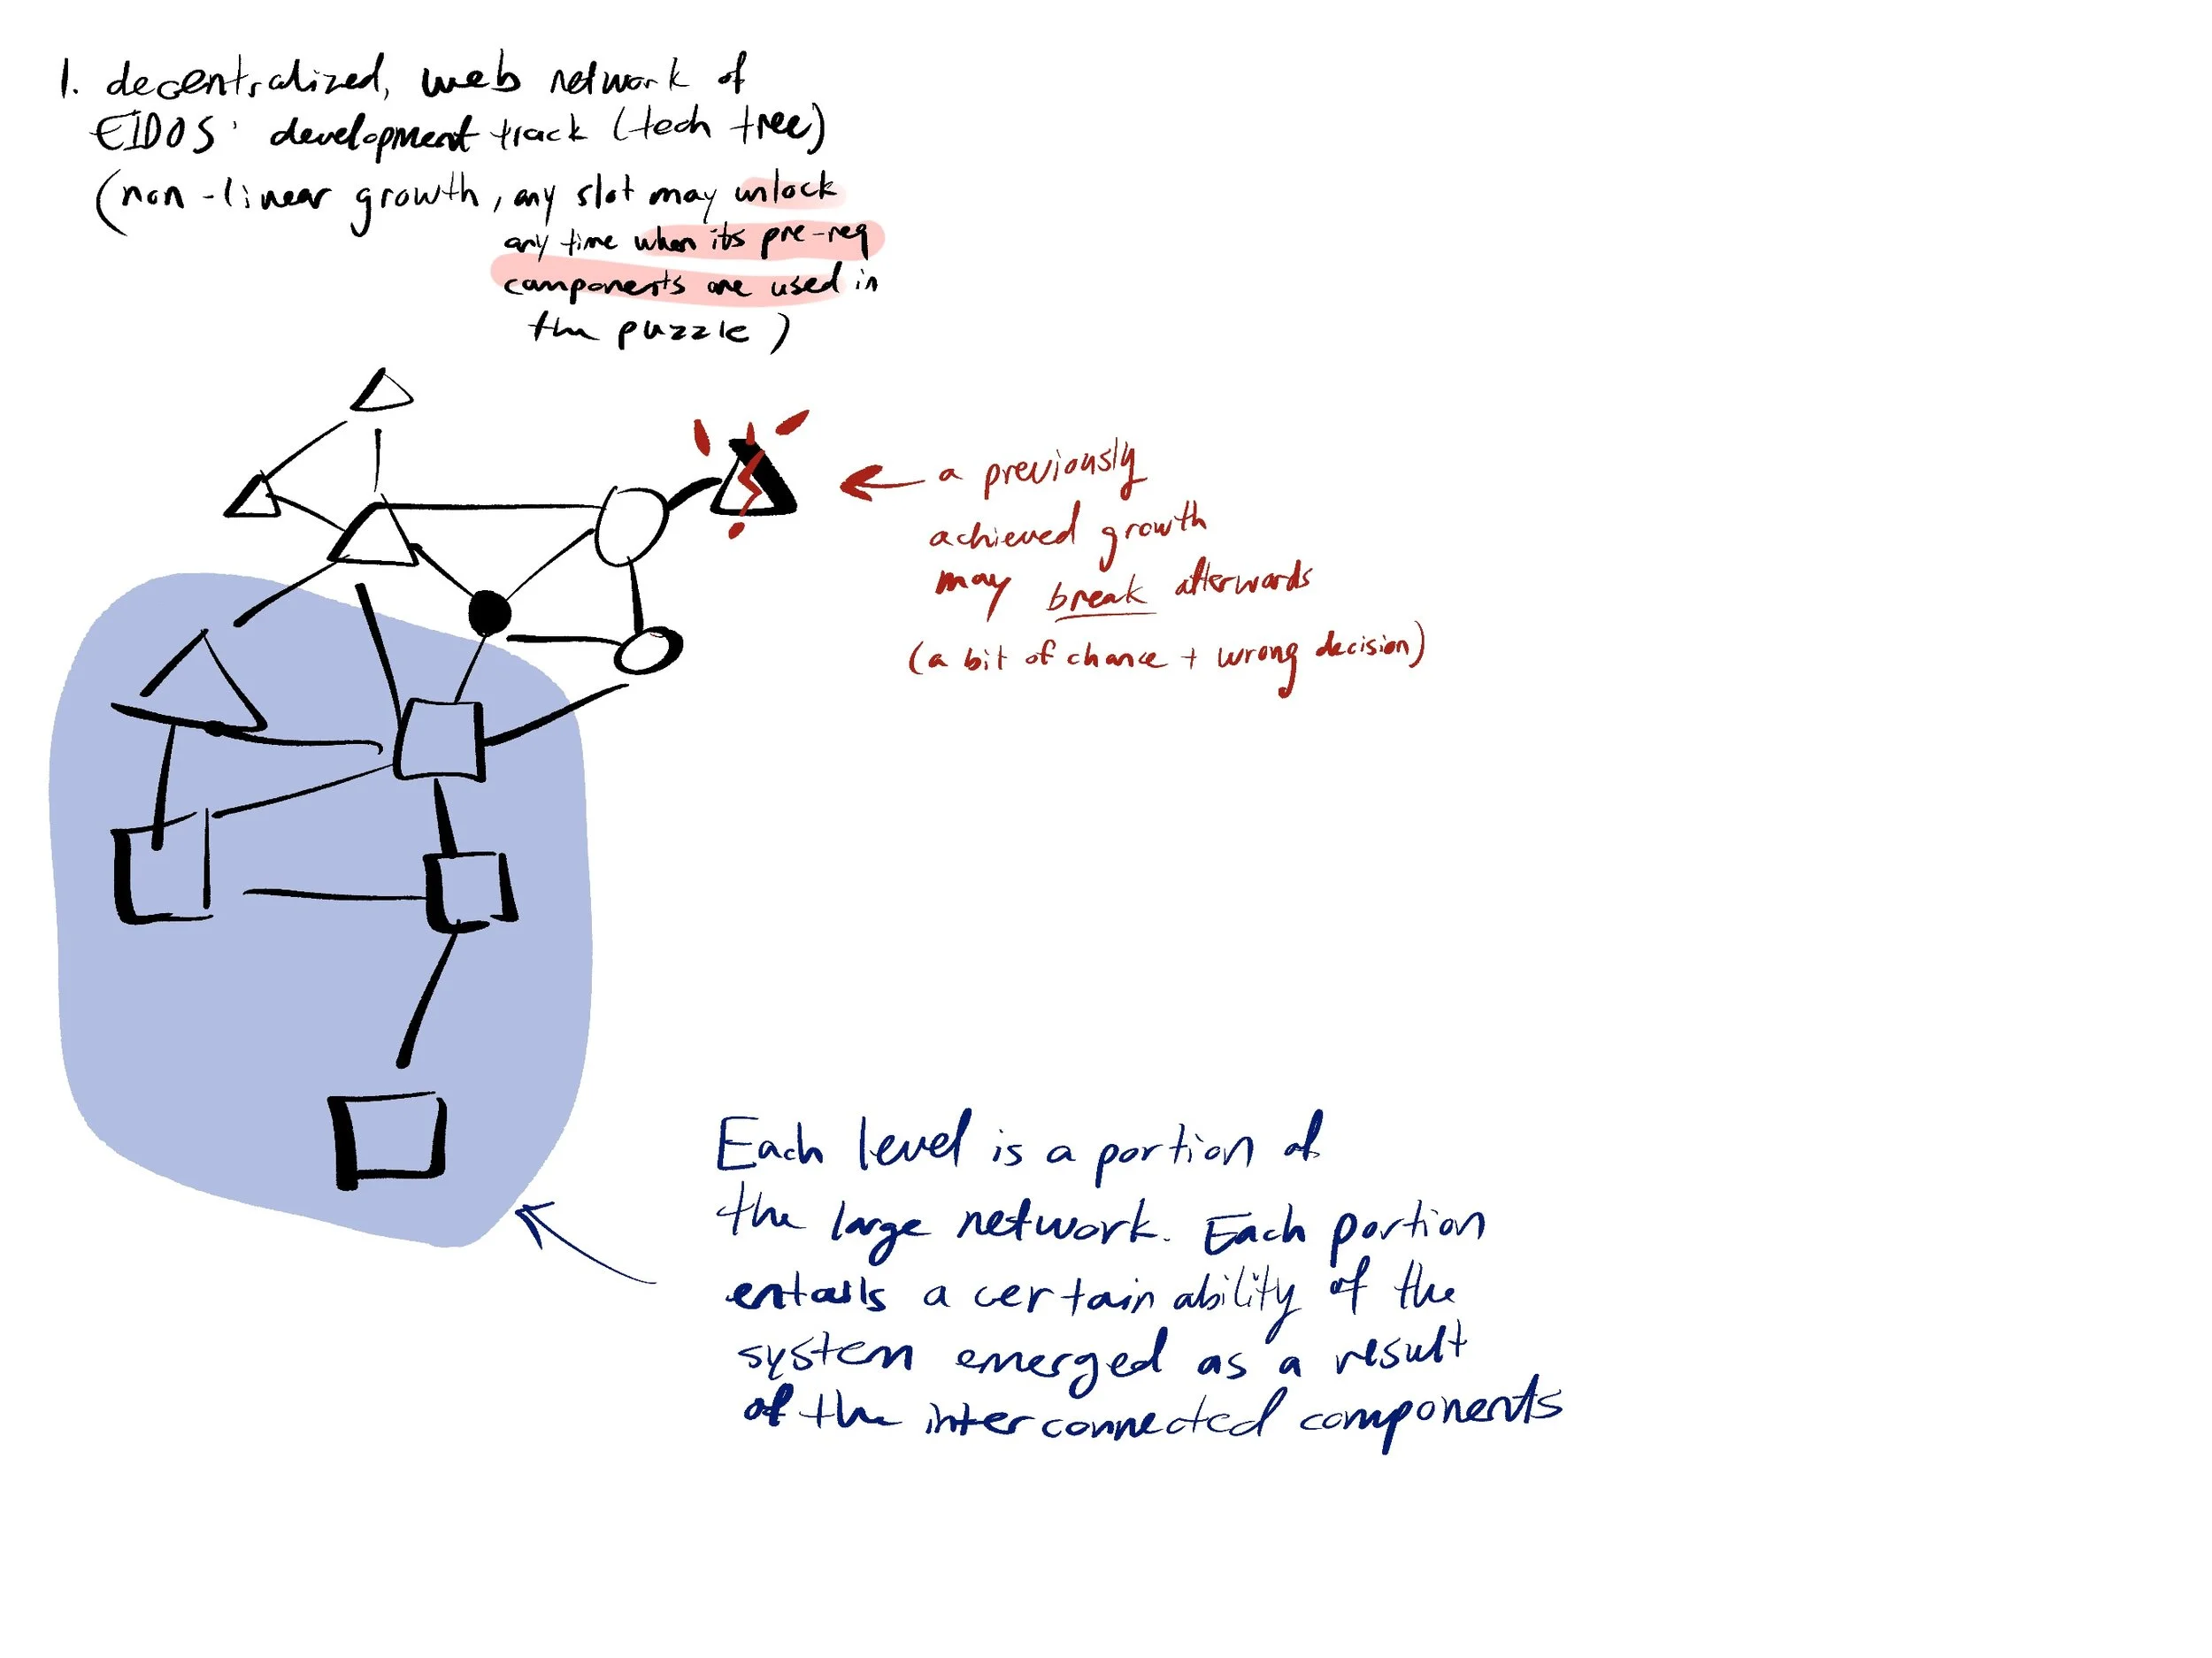 1. decentralized, web network of
EIDOS' development track (tech tree)
(non-linear growth, any slot may unlock
any time when its pre-req
components are used in
the puzzle)
a previously
achieved growth
may break afterwards
(a bit of chance + wrong decision)
Each level is a portion of
the large network. Each portion
entails a certain ability of the
system emerged as a result
of the interconnected components